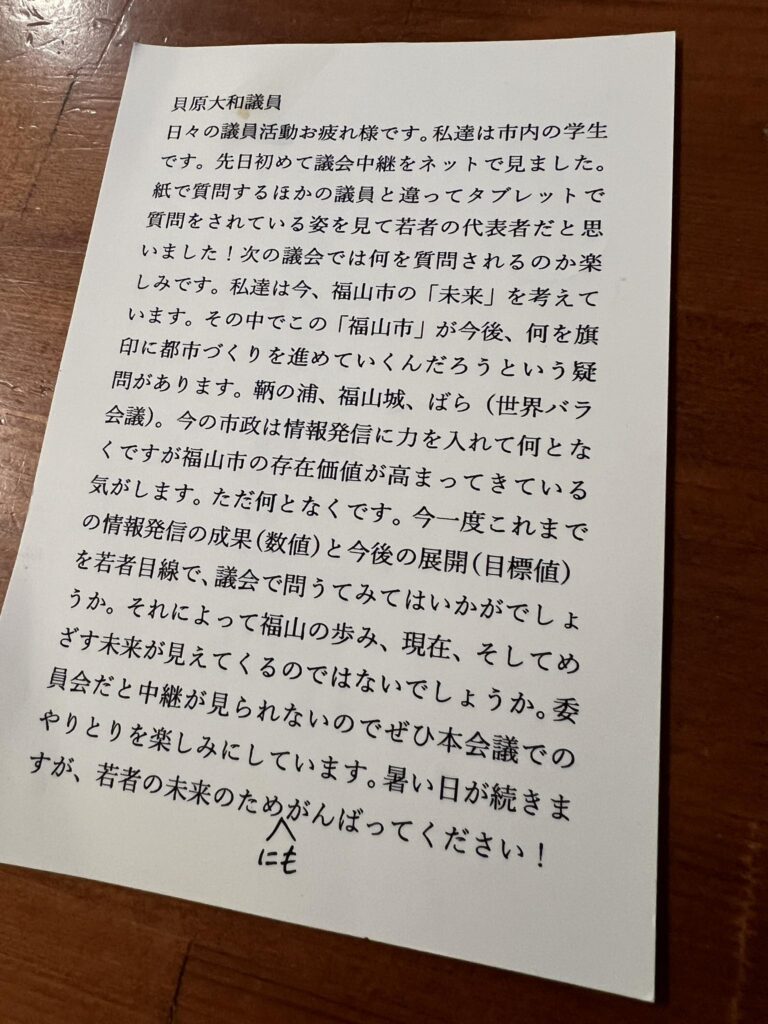 貝原大和議員
日々の議員活動お疲れ様です。私達は市内の学生
です。先日初めて議会中継をネットで見ました。
紙で質問するほかの議員と違ってタブレットで
質問をされている姿を見て若者の代表者だと思
いました！次の議会では何を質問されるのか楽
しみです。私達は今、福山市の「未来」を考えて
います。その中でこの「福山市」が今後、何を旗
印に都市づくりを進めていくんだろうという疑
問があります。鞆の浦、福山城、ばら（世界バラ
会議）。今の市政は情報発信に力を入れて何とな
くですが福山市の存在価値が高まってきている
気がします。ただ何となくです。今一度これまで
の情報発信の成果(数値)と今後の展開(目標値)
を若者目線で、議会で問うてみてはいかがでしょ
うか。それによって福山の歩み、現在、そしてめ
ざす未来が見えてくるのではないでしょうか。委
員会だと中継が見られないのでぜひ本会議での
やりとりを楽しみにしています。暑い日が続きま
すが、若者の未来のためがんばってください！
にも